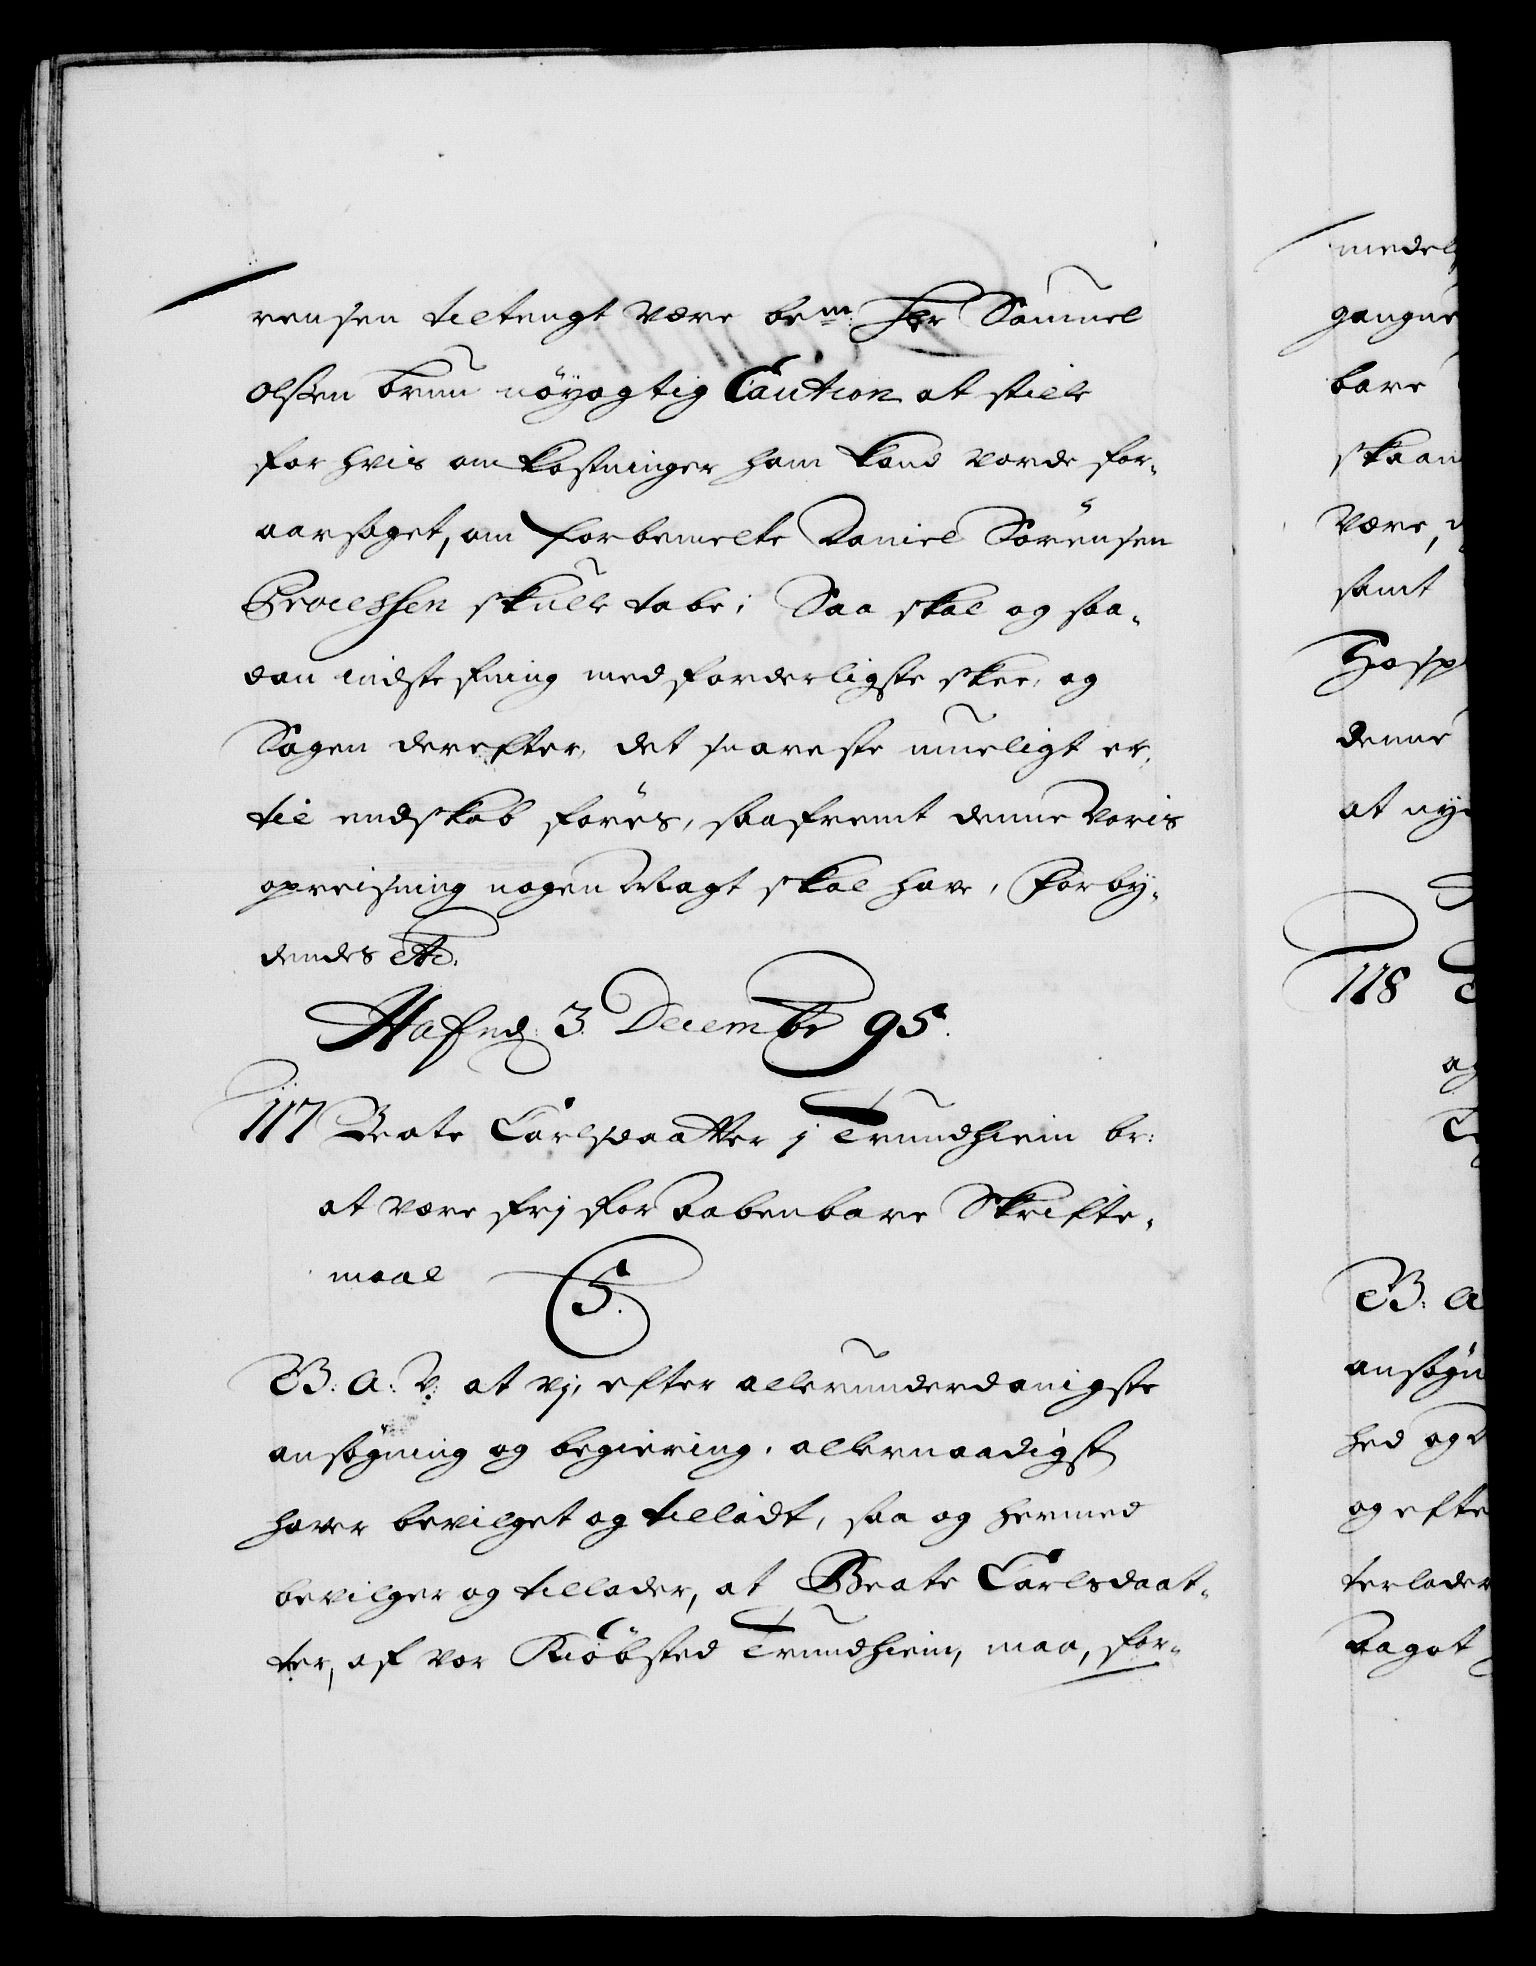 rensen tiltengt være bem: Hr Samuel
Olssen bruu nöyagtig Caution at stille
for hvis omkostninger ham kand vorde for-
aarsaget, om forbemelte Daniel Sörensen
Processen skulle tabe; Saa skal og saa-
dan indstefning med forderligste skee, og
Sagen derefter, det snareste mueligt er,
til endskab föres, saafremt denne Voris
opreisning nogen Magt skal have, Forby-
dendes etc.
Hafnæ 3. Decembr 95.
117 Beate Carlsdaatter j Trundhiem br:
at være frj for Aabenbare Skrifte-
maal
5.
B: A: V: at vj, efter allerunderdanigste
ansögning og begiering, allernaadigst
haver bevilget og tilladt, saa og hermed
bevilger og tillader, at Beate Carlsdaat-
ter, af vor Kiöbsted Trundhiem, maa, for-
medels
gangne
bare
skaan
være,
samt
Hosp
denne
at ny
118
og
B: A
ansögn
hed og
og efte
terlader
Aagot